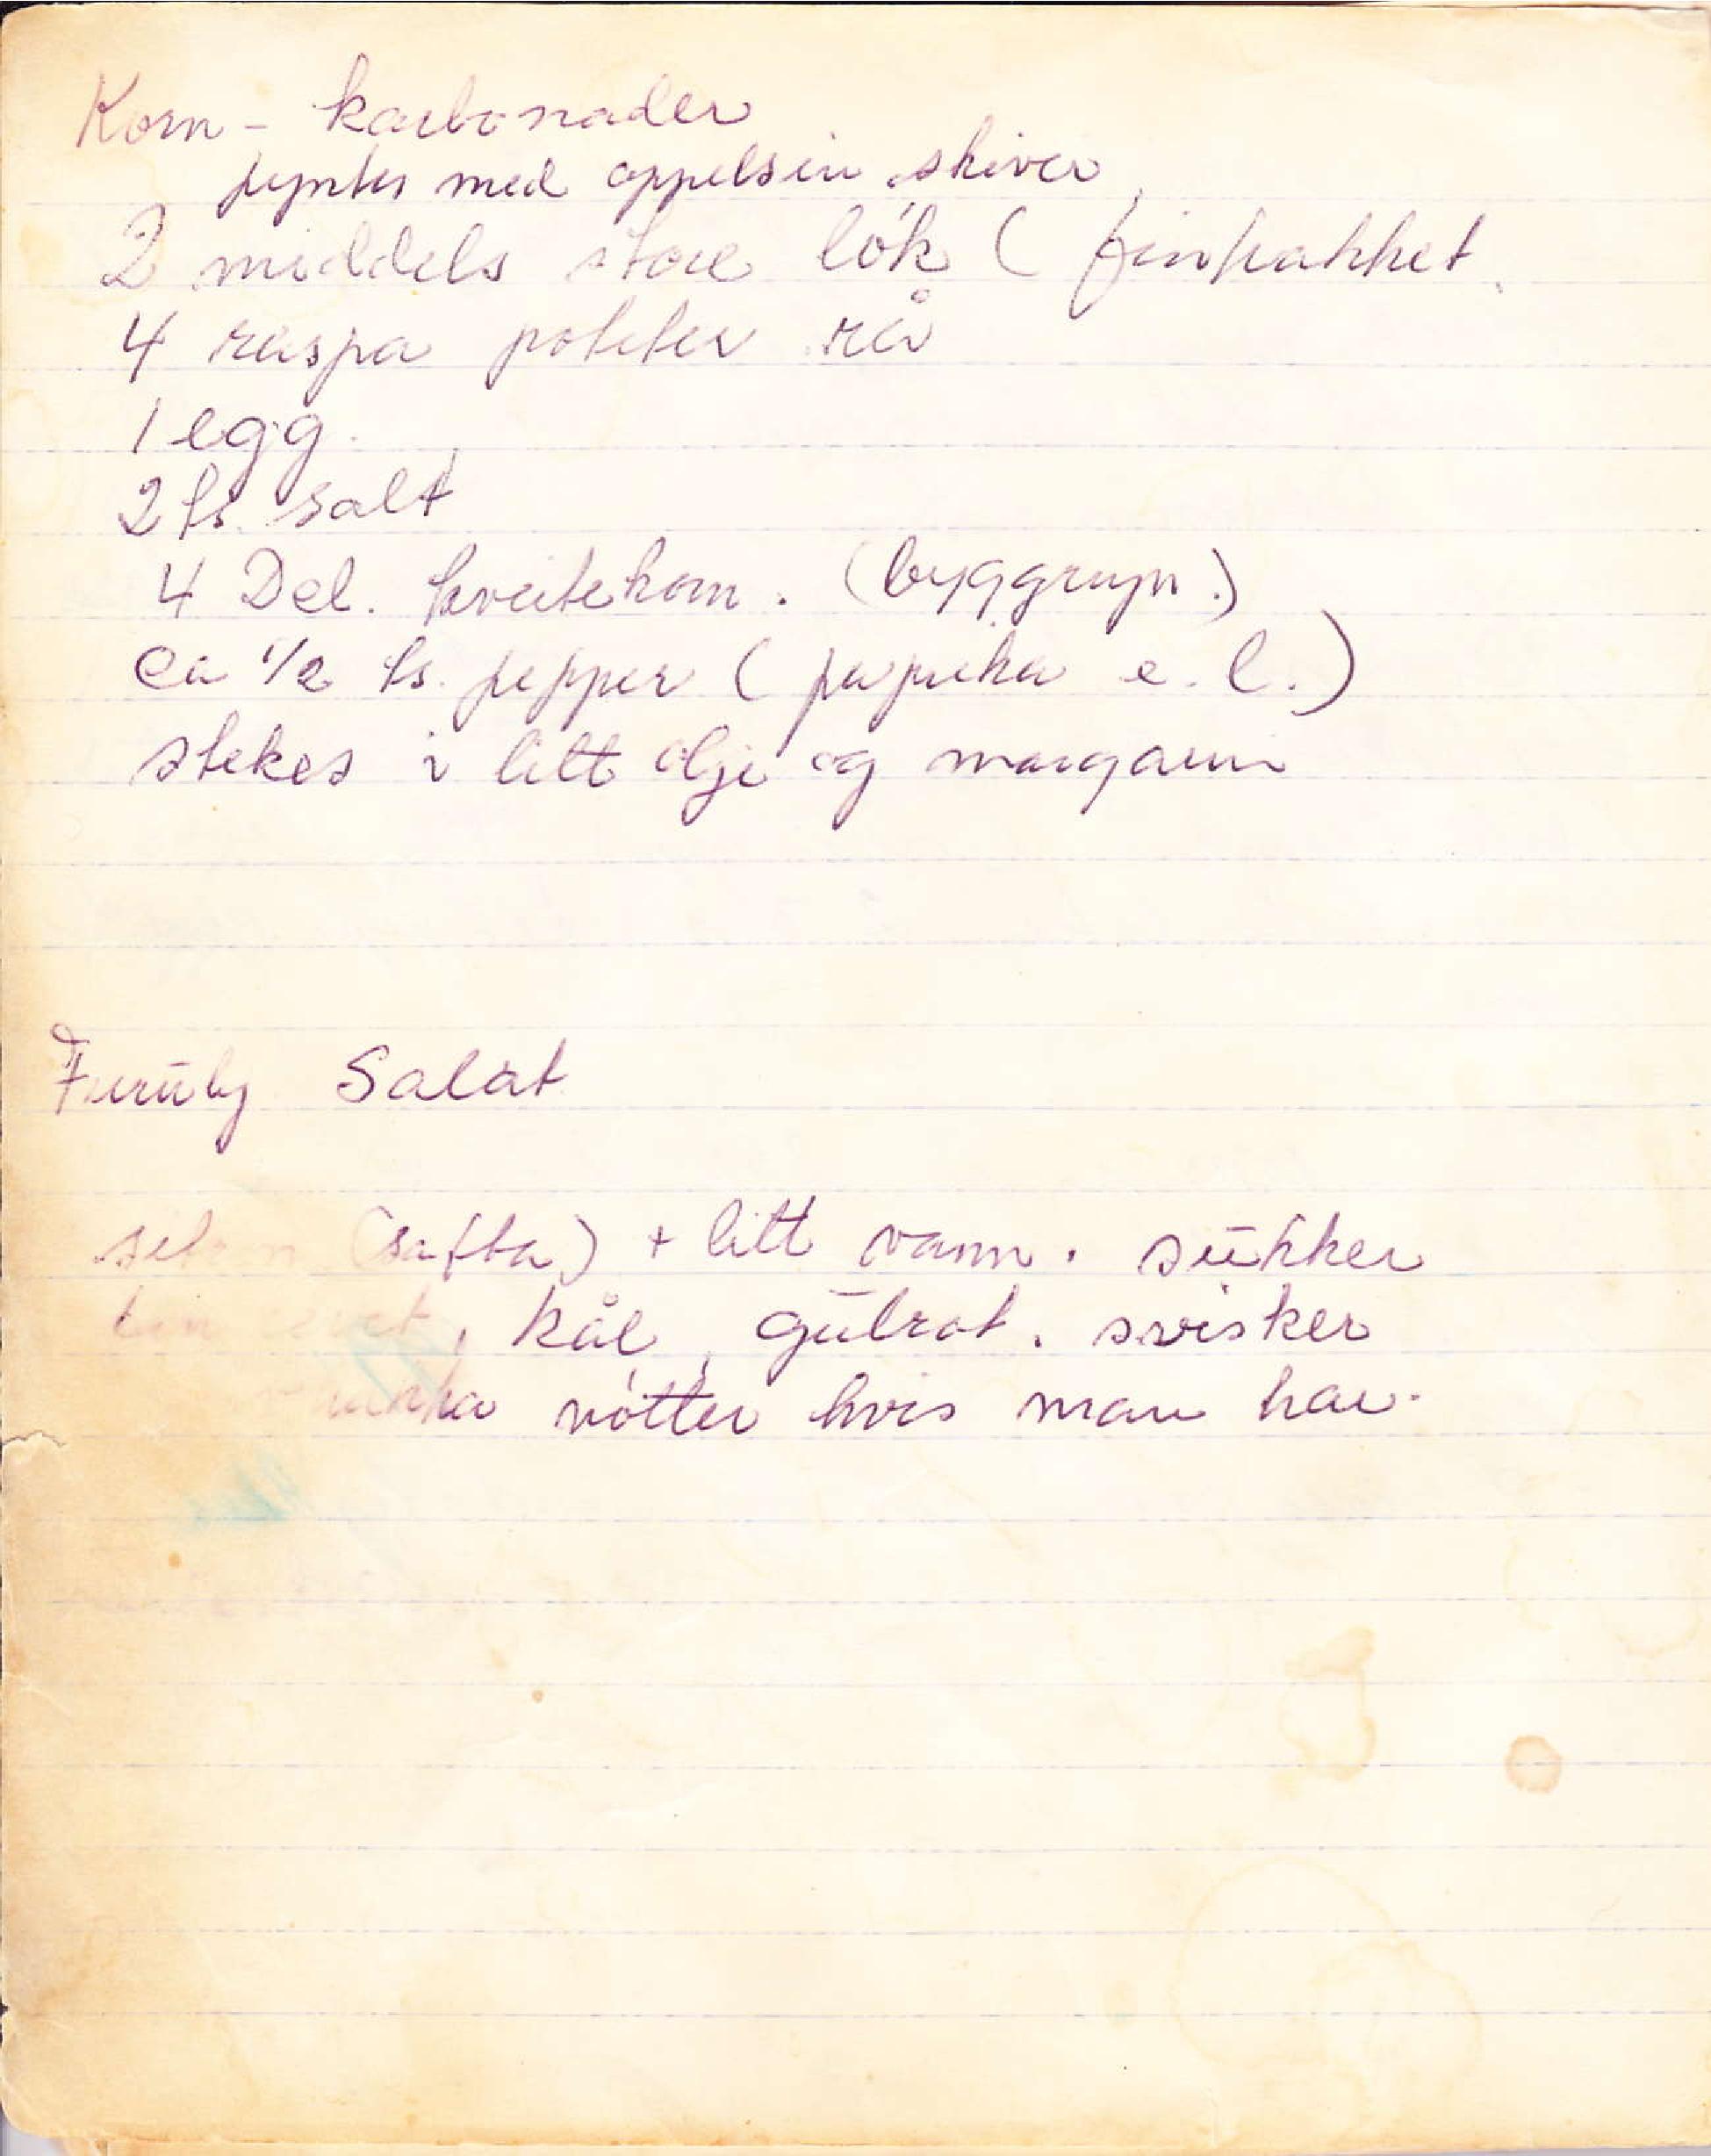 Korn - karbonader
pyntes med appelsin skiver
2 middels store lók ( finhakket
4 raspa poteter rå
1 egg.
2 ts. salt
4 Del. kveitekorn. (byggryn.)
ca 1/2 ts. pepper ( paprika e. l.)
stekes i litt olje og margarin
Furūly Salat
sitron (safta) + litt vann. sūkker
, kål, gūlrot. svisker
nótter hvis man har.